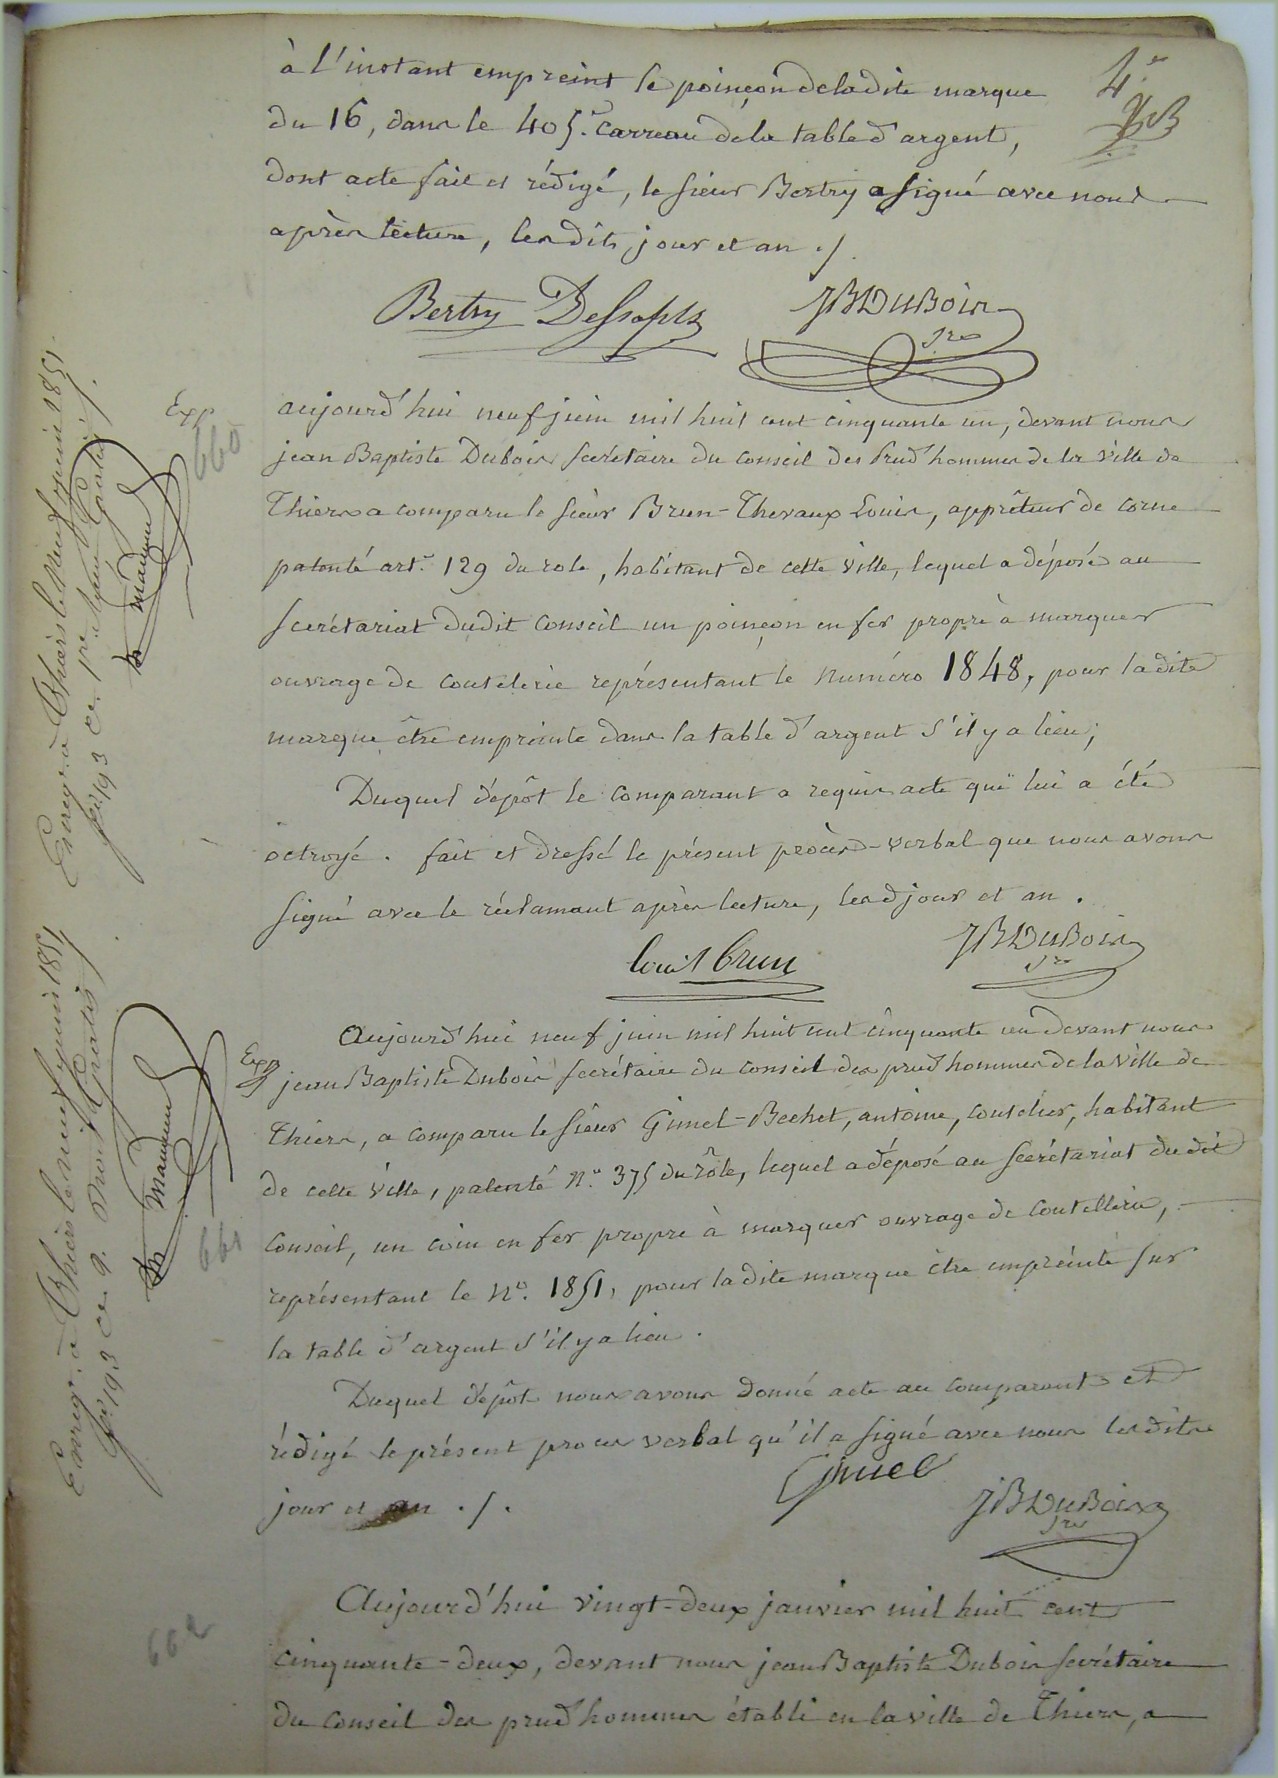 à l'instant empreint le poinçon de la dite marque
du 16, dans le 405e. carreau de la table d'argent,
dont acte fait et rédigé, le sieur Bertry a signé avec nous
après lecture, les dits jour et an ./.
4e
Bertry Dessapts JB Dubois
sre
Exp
660
aujourd'hui neuf juin mil huit cent cinquante un, devant nous
jean Baptiste Dubois secrétaire du conseil des prud'hommes de la ville de
Thiers a comparu le sieur Brun-Thevaux Louis, apprêteur de corne
patenté art. 129 du role, habitant de cette ville, lequel a déposé au
secrétariat dudit conseil un poinçon en fer propre à marquer
ouvrage de coutelerie représentant le numéro 1848, pour la dite
marque être empreinte dans la table d'argent s'il y a lieu;
Duquel dépôt le comparant a requis acte qui lui a été
octroyé. fait et dressé le présent procès-verbal que nous avons
signé avec le réclamant après lecture, lesd jour et an.
Louis Brun JB Dubois
sre
Enregé. à Thiers le neuf juin 1851
fo. 193 ce. 1re
Exp
661
Aujourd'hui neuf juin mil huit cent cinquante un devant nous
jean Baptiste Dubois secrétaire du conseil des prud'hommes de la ville de
Thiers, a comparu le sieur Gimel-Bechet, antoine, coutelier, habitant
de cette ville, patenté No. 375 du rôle, lequel a déposé au secrétariat du dit
conseil, un coin en fer propre à marquer ouvrage de coutellerie,
représentant le No. 1851, pour la dite marque être empreinte sur
la table d'argent s'il y a lieu.
Duquel dépôt nous avons donné acte au comparant et
rédigé le présent procès verbal qu'il a signé avec nous les dits
jour et an ./.
Gimel
JB Dubois
sre
Enregé. à Thiers le neuf juin 1851
fo. 193 ce. 9.
662
Aujourd'hui vingt-deux janvier mil huit cent
cinquante-deux, devant nous jean Baptiste Dubois secrétaire
du conseil des prud'hommes établi en la ville de Thiers, a